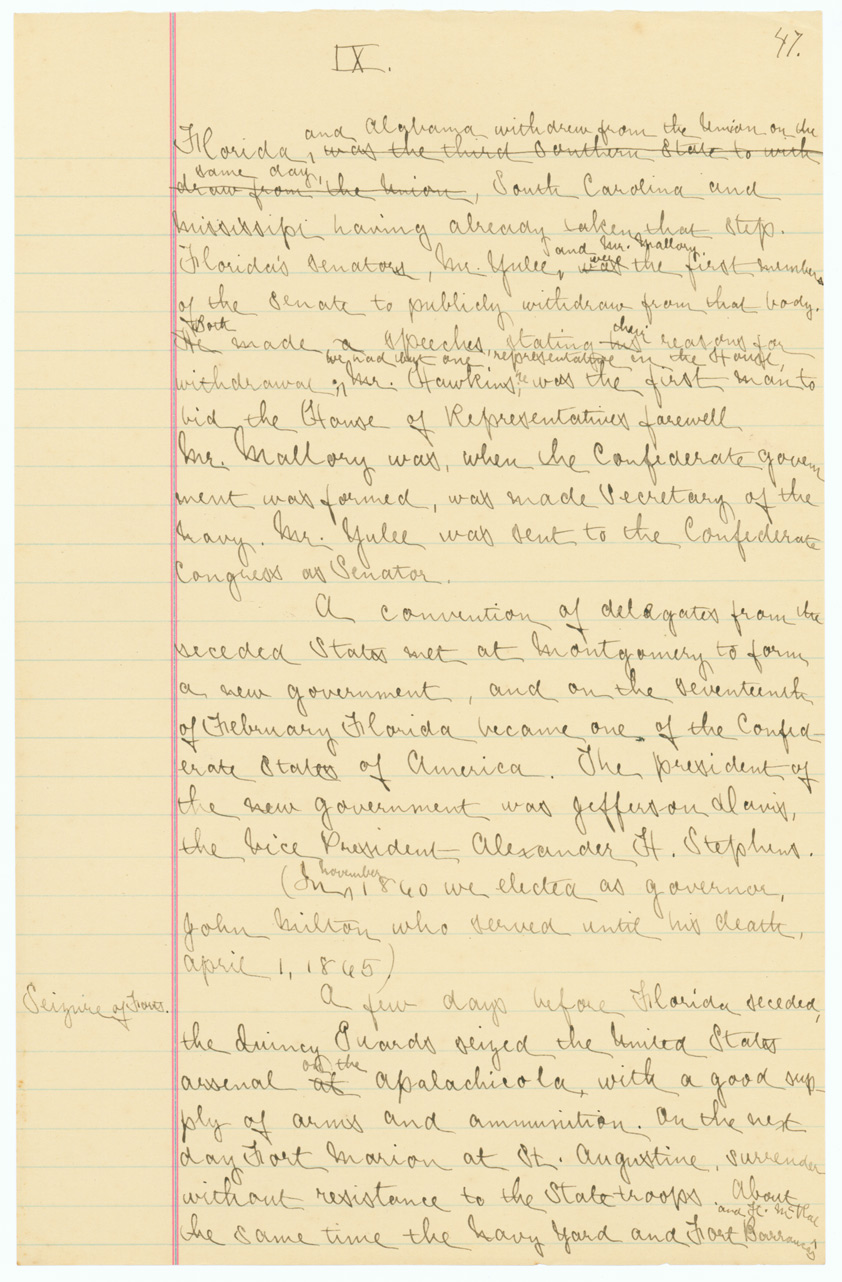 47.
IX.
and Alabama withdrew from the Union on the
Florida, was the third Southern State to with
same day,
draw from the Union, South Carolina and
Mississippi having already taken that step.
and Mr. Mallory.
Florida's senators, Mr. Yulee, was were the first members
of the Senate to publicly withdraw from that body.
Both their
He made a speeches, stating his reasons for
we had but one representative in the House,
withdrawal; Mr. Hawkins, he was the first man to
bid the House of Representatives farewell
Mr. Mallory was, when the Confederate govern
ment was formed, was made Secretary of the
Navy. Mr. Yulee was sent to the Confederate
Congress as Senator.
A convention of delegates from the
seceded States met at Montgomery to form
a new government, and on the seventeenth
of February Florida became one of the Confed-
erate States of America. The president of
the new government was Jefferson Davis,
the Vice President Alexander H. Stephens.
November
(In 1860 we elected as governor,
John Milton who served until his death,
april 1, 1865)
Seizure of Forts.
A few days before Florida seceded,
the Quincy Guards seized the United States
on the
arsenal at Apalachicola, with a good sup-
ply of arms and ammunition. On the next
day Fort Marion at St. Augustine, surrender
without resistance to the State troops. About
and Ft. McRae
the same time the Navy Yard and Fort Barrancas